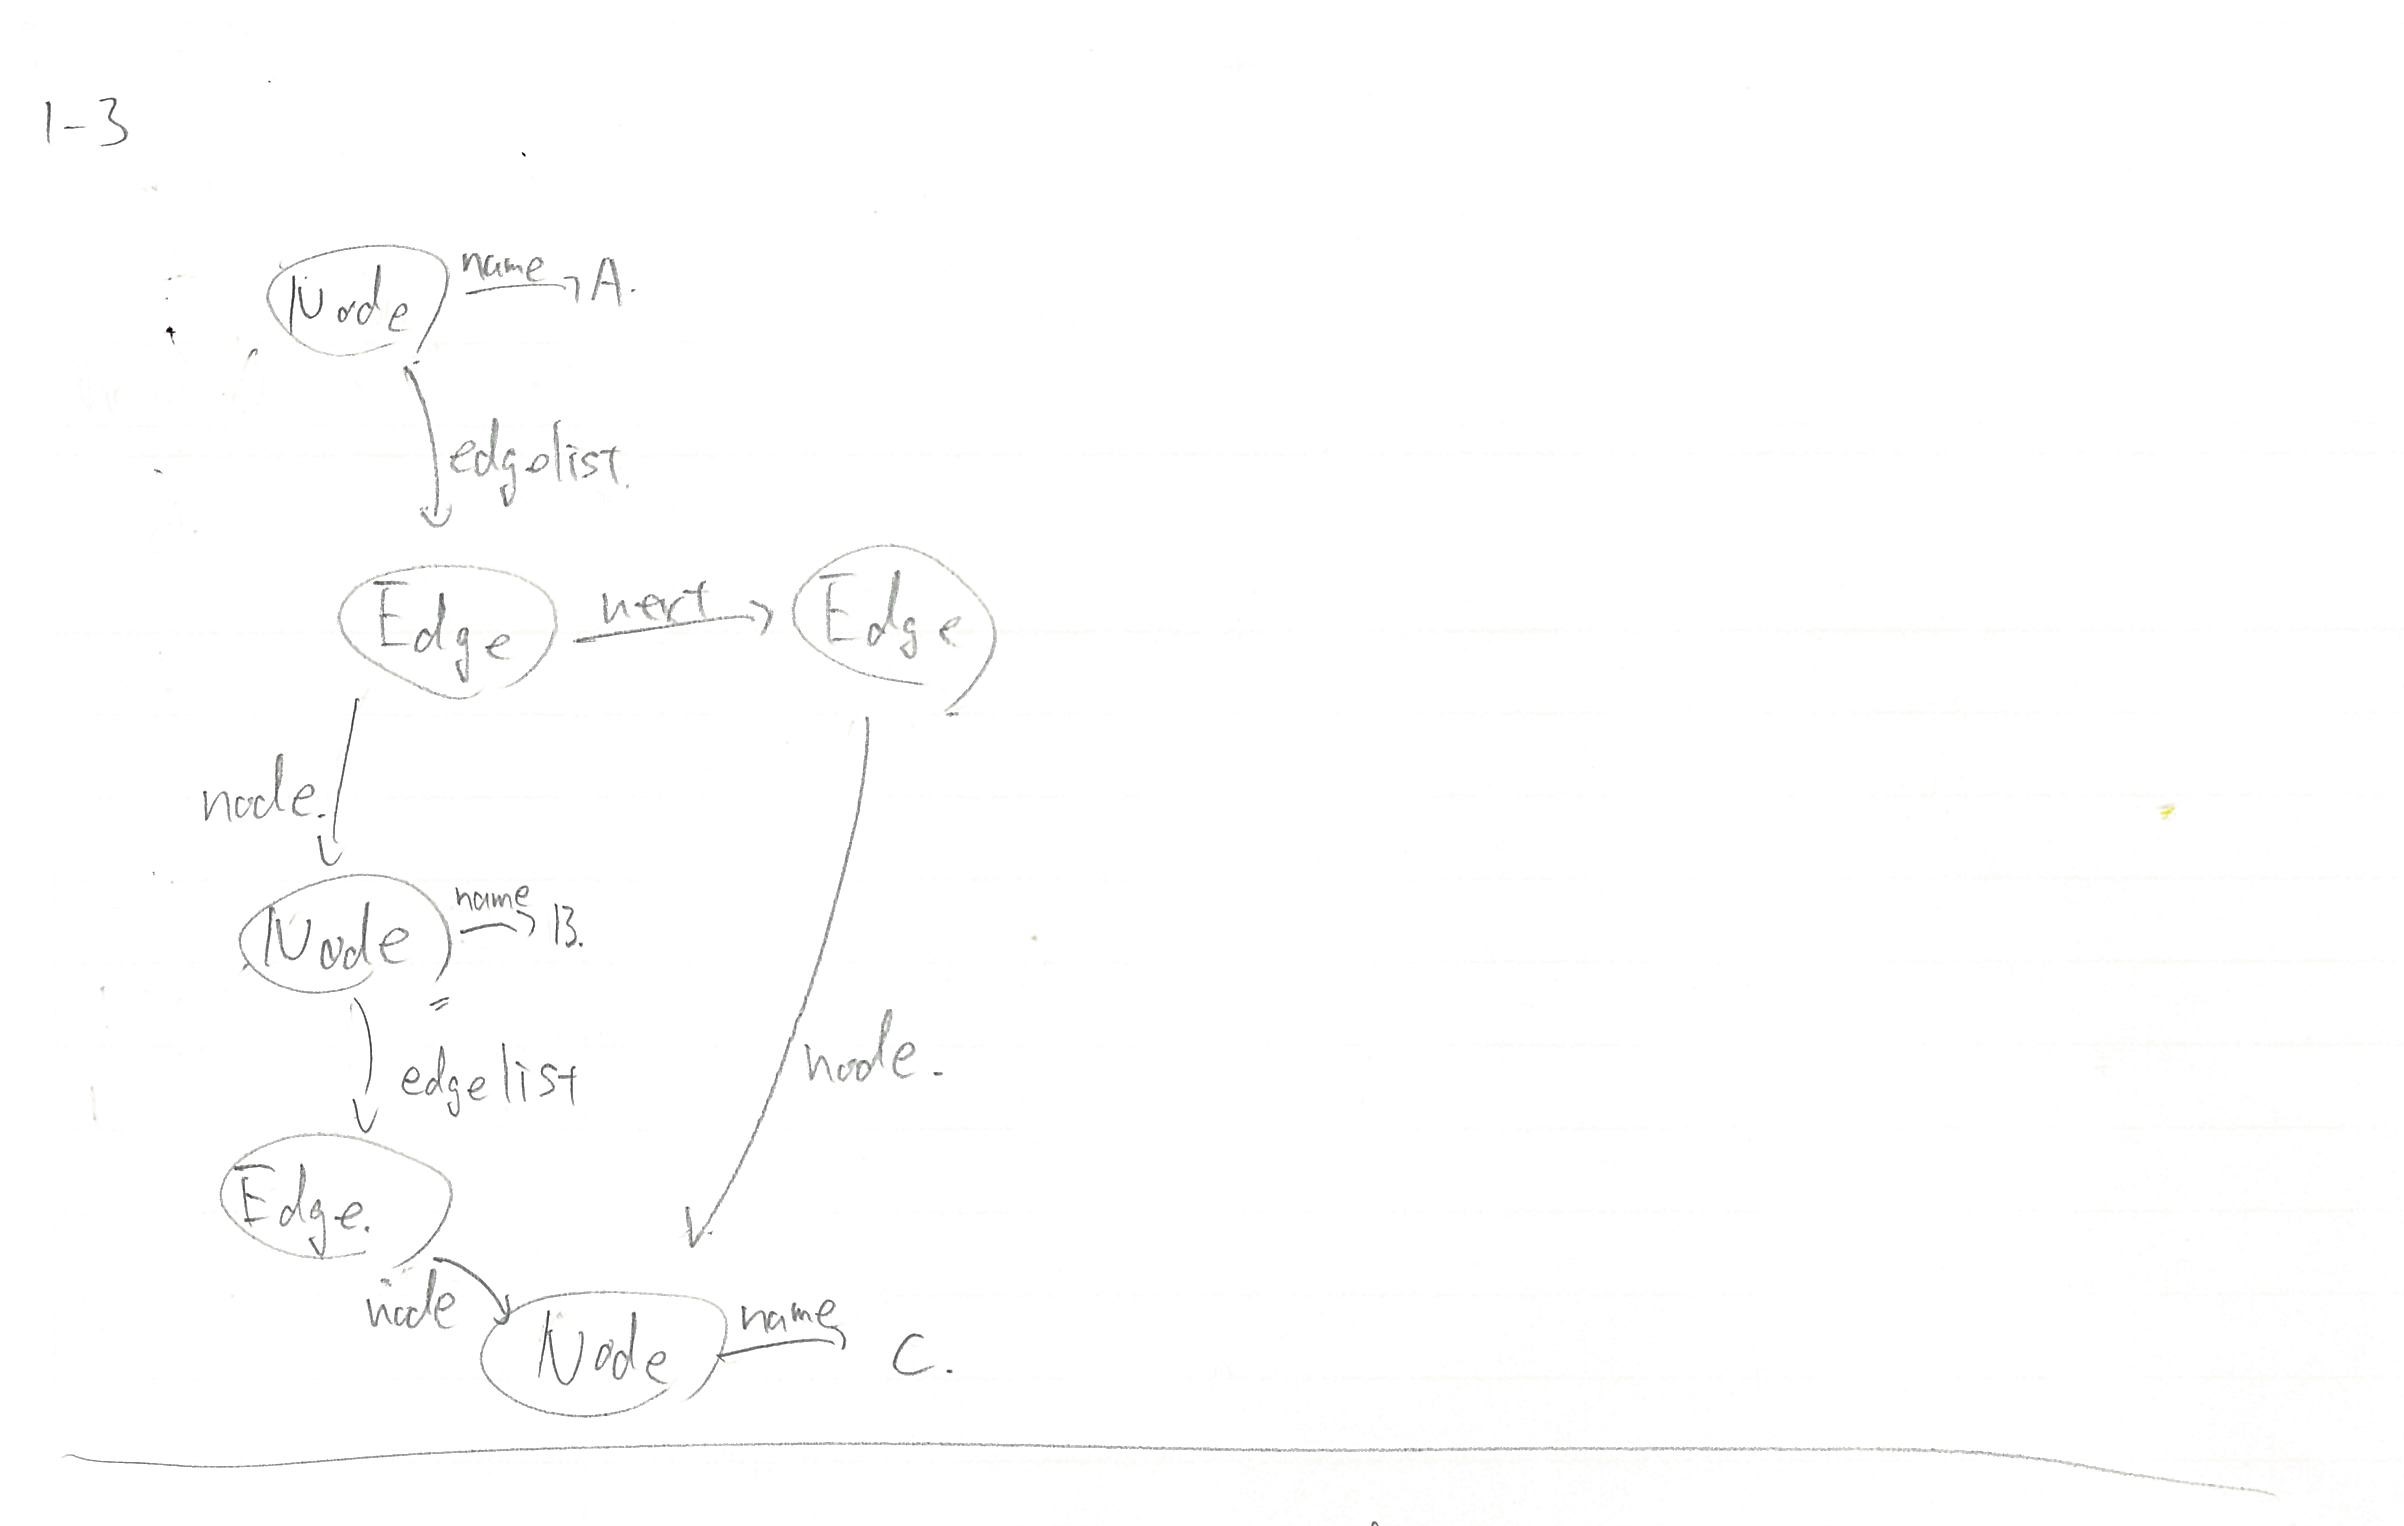 1-3
Node name A.
edgelist.
Edge next Edge
node.
Node name B.
node.
edgelist
Edge.
node
Node name C.